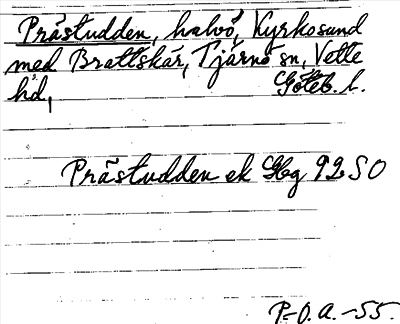 Prästudden, halvö, Kyrkosund
med Brattskär, Tjärnö sn, Vette
hd, Göteb. l.
Prästudden ek Gbg 92 SO
P.-O. A. -55.